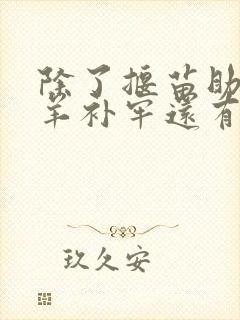 除了揠苗助
羊补牢还有
玖久安